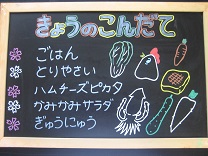 きょうのこんだて
ごはん
とりやさい
ハムチーズピカタ
かみかみサラダ
ぎゅうにゅう